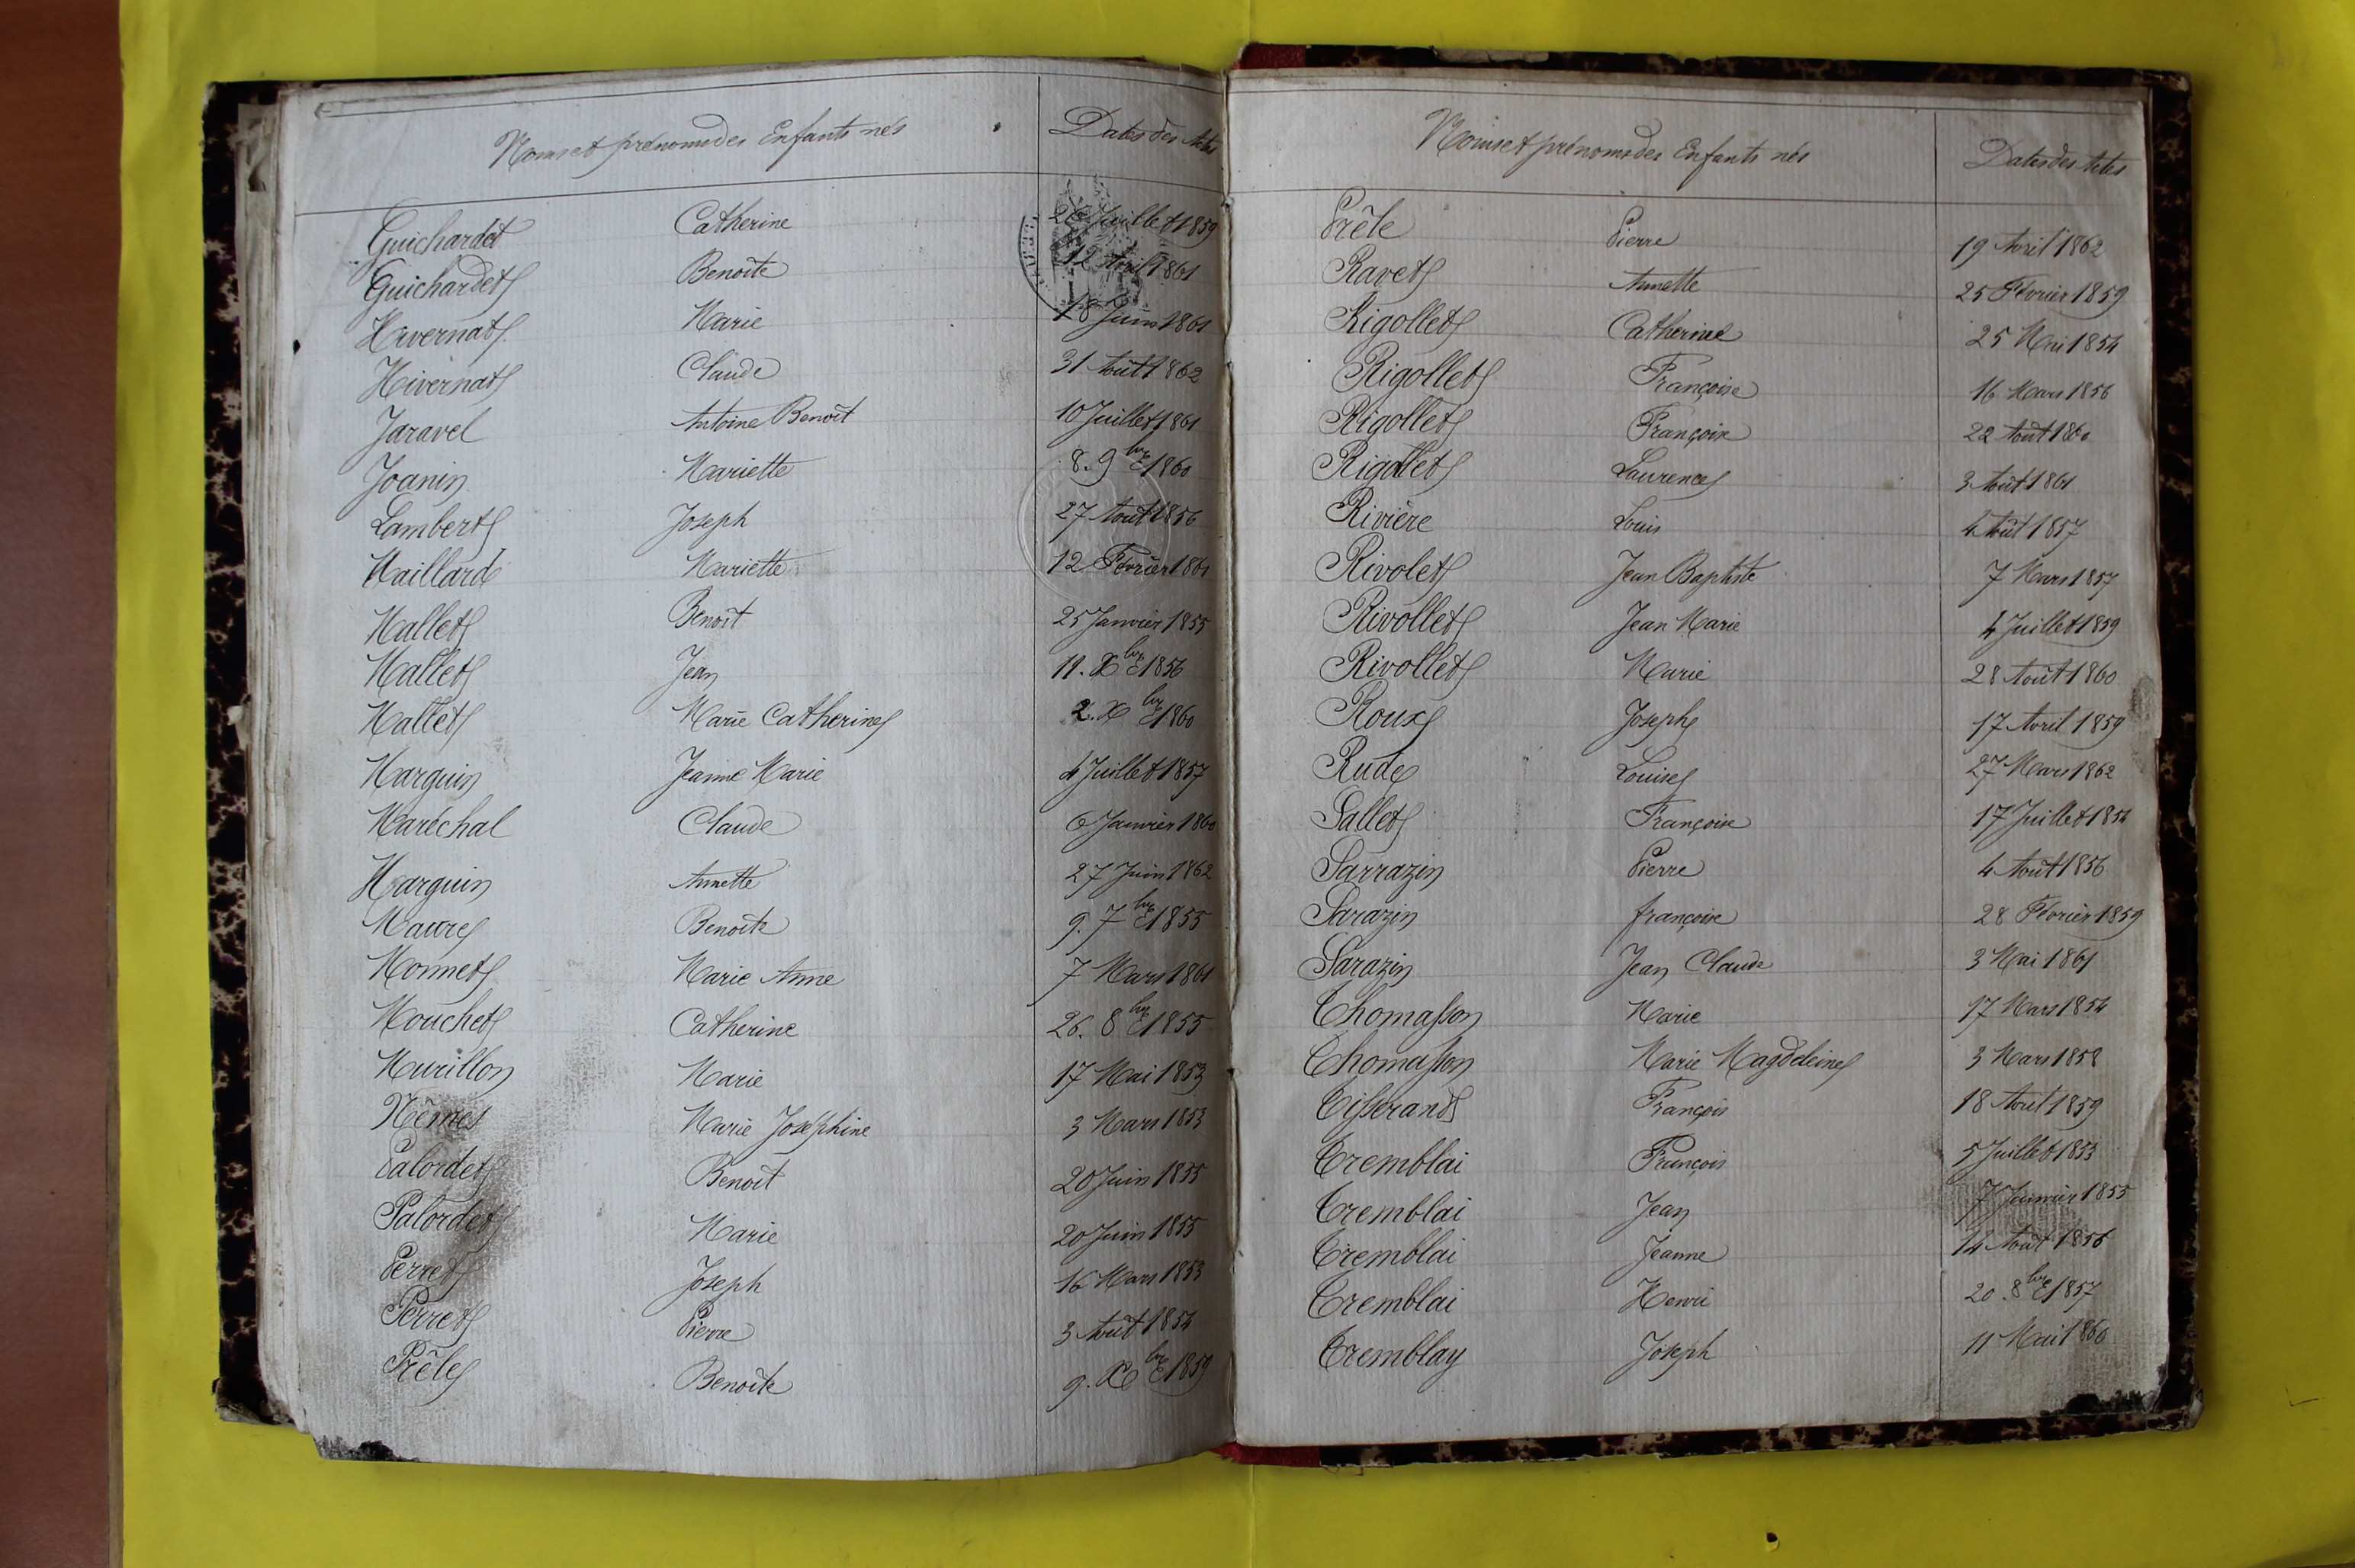 Noms et prénoms des Enfants nés Dates des Actes
Guichardet Catherine 26 Juillet 1859
Guichardet Benoîte 12 Avril 1861
Hivernat Marie 18 Juin 1861
Hivernat Claude 31 Août 1862
Jaravel Antoine Benoît 10 Juillet 1861
Joanin Mariette 8. 9bre 1860
Lambert Joseph 27 Août 1856
Maillard Mariette 12 Février 1861
Mallet Benoît 25 Janvier 1855
Mallet Jean 11. Xbre 1856
Mallet Marie Catherine 2. Xbre 1860
Marguin Jeanne Marie 4 Juillet 1857
Maréchal Claude 6 Janvier 1860
Marguin Annette 27 Juin 1862
Maure Benoîte 9. 7bre 1855
Monnet Marie Anne 7 Mars 1861
Mouchet Catherine 26. 8bre 1855
Murillon Marie 17 Mai 1853
Nêmes Marie Joséphine 3 Mars 1853
Palordet Benoît 20 Juin 1855
Palordet Marie 20 Juin 1855
Perret Joseph 16 Mars 1853
Perret Pierre 3 Août 1854
Prêle Benoîte 9. Xbre 1859
Noms et prénoms des Enfants nés Dates des Actes
Prêle Pierre 19 Avril 1862
Ravet Annette 25 Février 1859
Rigollet Catherine 25 Mai 1854
Rigollet Françoise 16 Mars 1856
Rigollet Françoise 22 Août 1860
Rigollet Laurence 3 Août 1861
Rivière Louis 4 Août 1857
Rivolet Jean Baptiste 7 Mars 1857
Rivollet Jean Marie 4 Juillet 1859
Rivollet Marie 28 Août 1860
Roux Joseph 17 Avril 1859
Rude Louise 27 Mars 1862
Sallet Françoise 17 Juillet 1854
Sarrazin Pierre 4 Août 1856
Sarazin françoise 28 Février 1859
Sarazin Jean Claude 3 Mai 1861
Thomasson Marie 17 Mars 1854
Thomasson Marie Magdeleine 3 Mars 1858
Tisserand François 18 Août 1859
Tremblai François 5 Juillet 1853
Tremblai Jean 7 Janvier 1855
Tremblai Jeanne 14 Août 1856
Tremblai Henri 20. 8bre 1857
Tremblay Joseph 11 Mai 1860